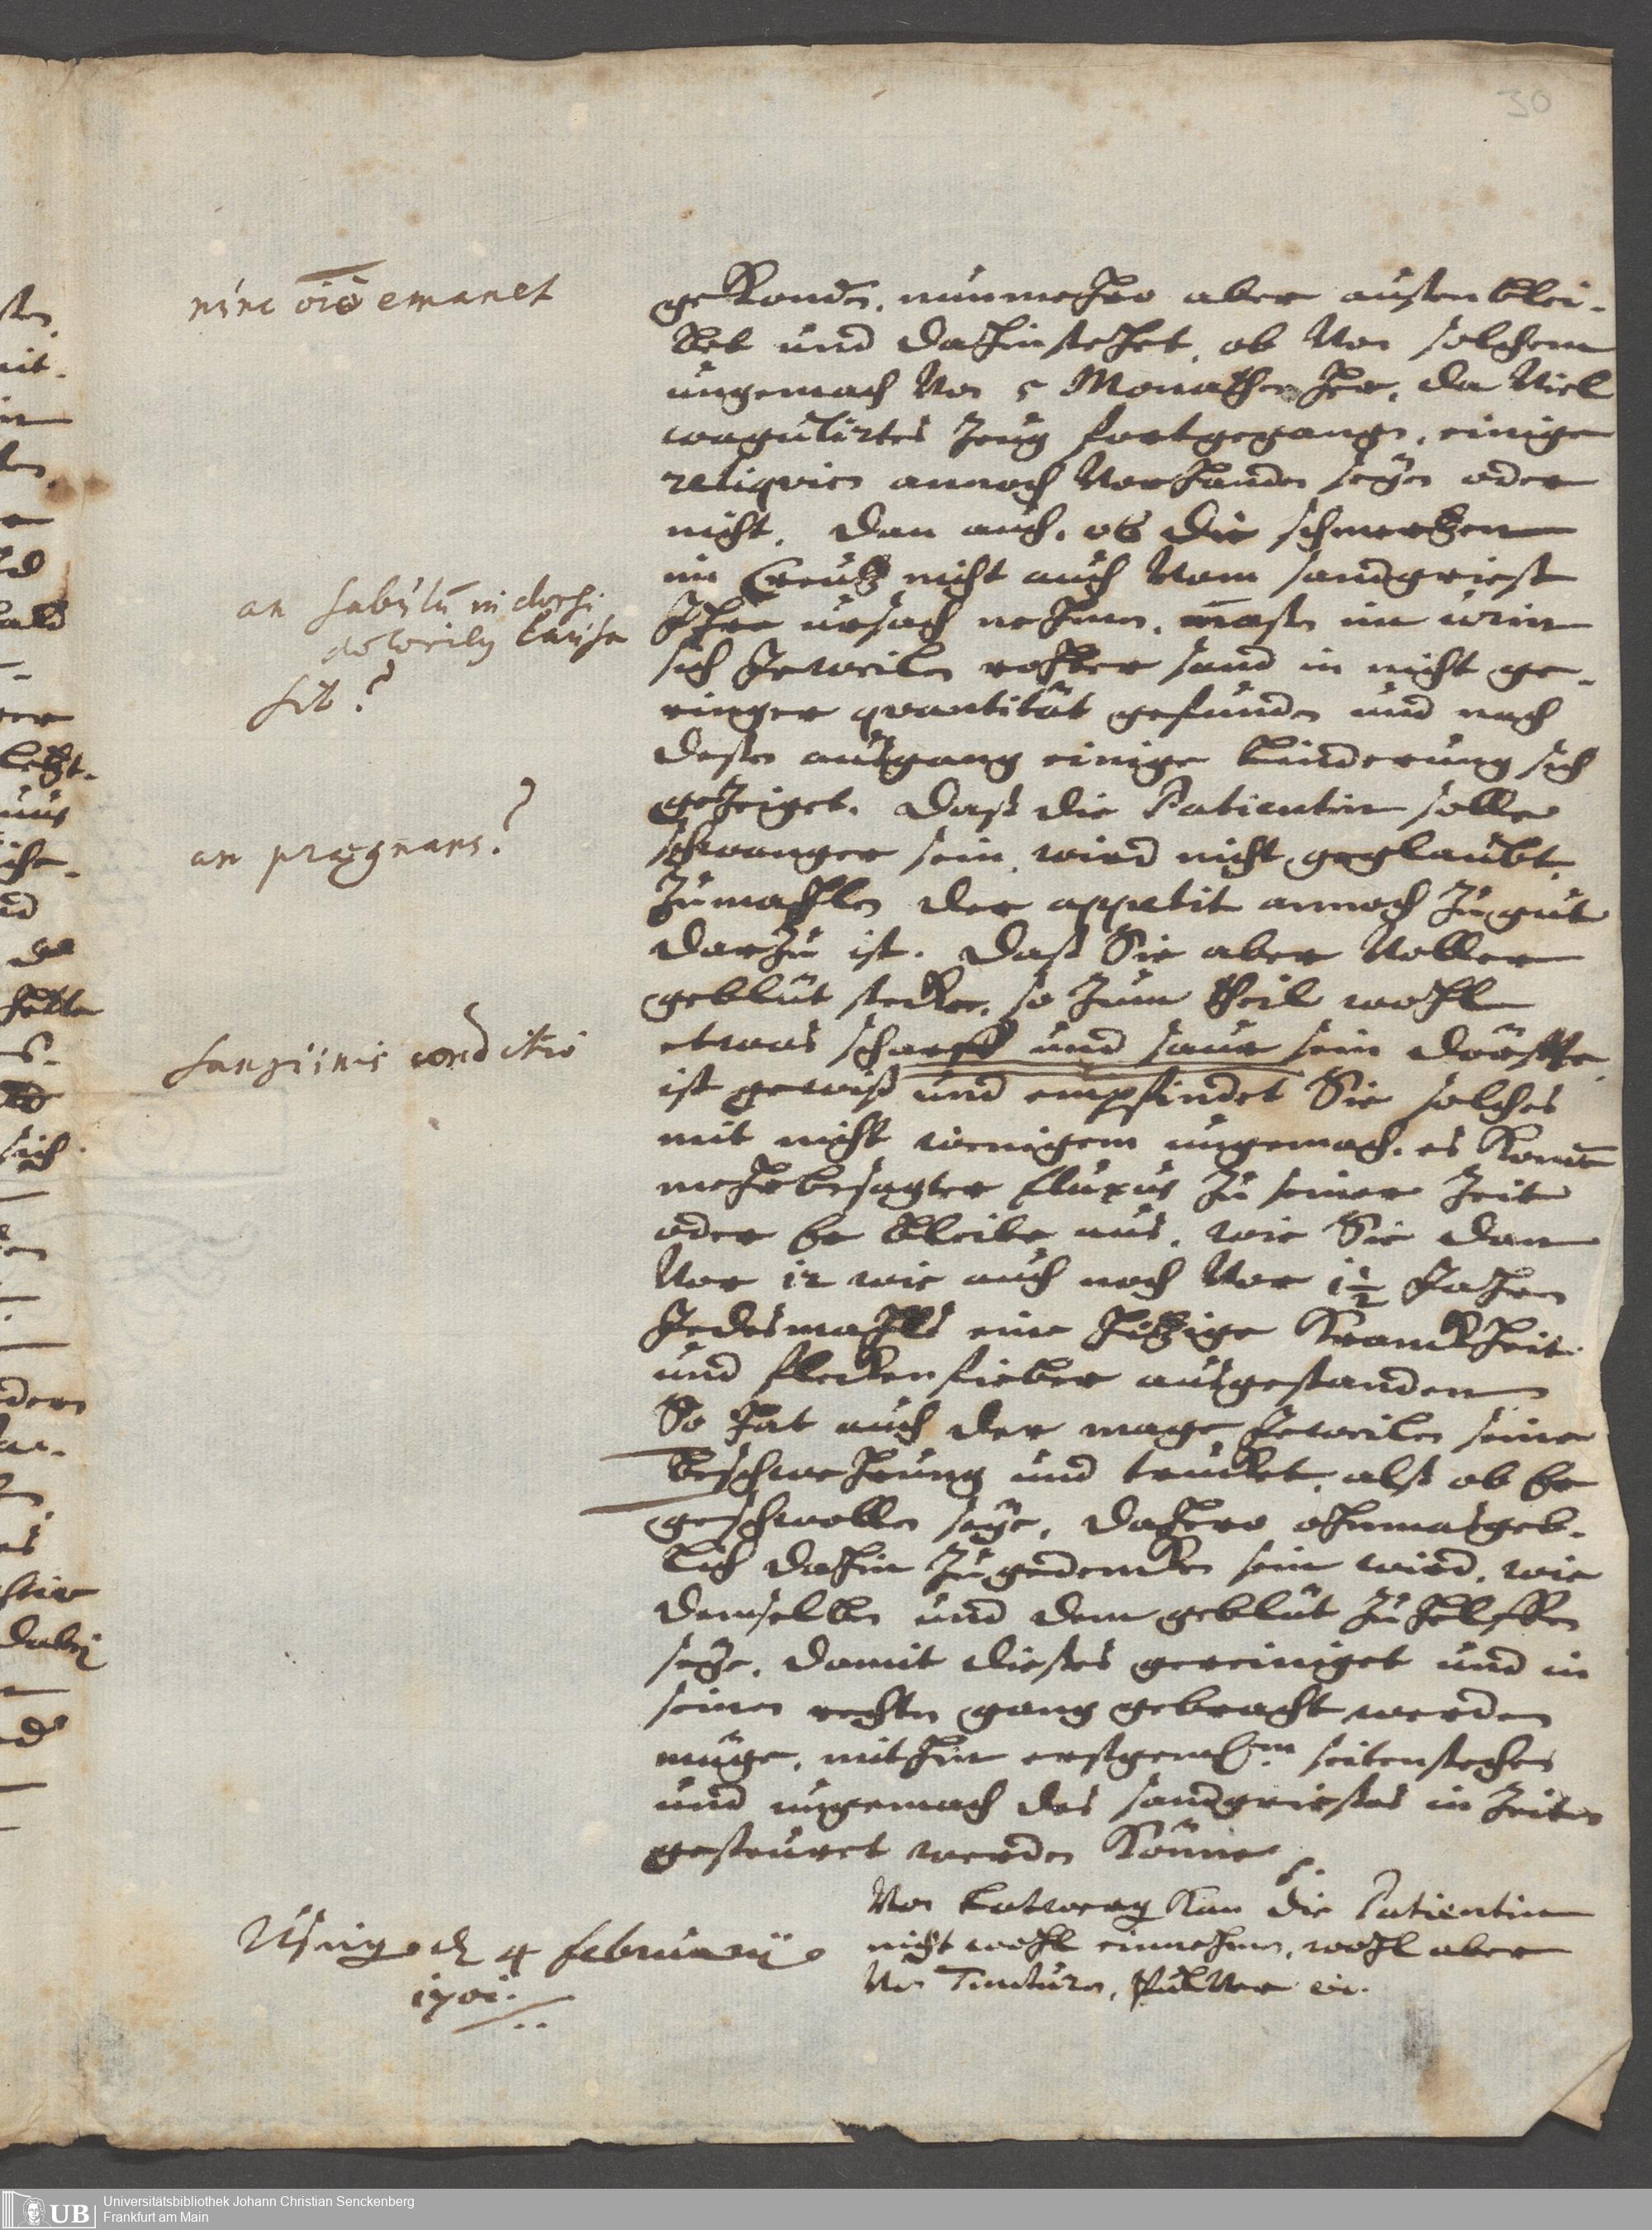 30
nunc o[mn]i[n]o emanet
an sabulu[m] in dorsi
doloribus causa
sit?
an prægnans?
sanguinis conditio
gekonden, nunmehro aber außenblei-
bet und dahinstehet, ob von solchem
ungemach von 5 Monathen her, da viel
coagulirtes zeug fortgegangen, einige
reliquien annoch vorhanden seyen oder
nicht. dan auch, ob die schmertzen
im Creutz nicht auch vom sandgrieß
Ihre ursach nehmen, maßen im urin
sich Jeweilen rother sand in nicht ge-
ringer quantität gefunden und nach
deßen außgang einige linderung sich
gezeiget. daß die Patientin solle
schwanger sein, wird nicht geglaubt,
zumahlen der appetit annoch zu gut
darzu ist. daß Sie aber voller
geblüt stecke, so zum theil wohl
etwas scharff und saur sein dörffte,
ist gewiß und empfindet Sie solches
mit nicht wenigem ungemach, es kom̄e
mehrbesagter fluxus zu seiner zeit
oder Er bleibe aus, wie Sie dan
vor 12 wie auch noch vor 1½ Jahren
Jedesmahls eine hitzige Kranckheit
und fleckenfieber außgestanden
So hat auch der mage Jeweilen seine
beschwehrung und trucket, alß ob Er
geschwollen seye, dahero ohnmaßgeb-
lich dahin zu gedencken sein wird, wie
demselben und dem geblüt zu helffen
seye, damit dießes gereiniget und in
seinen rechten gang gebracht werden
müge, mithin erstgem[elte]m seitenstechen
und ungemach des sandgrießes in zeiten
gesteuret werden könne.
Von Latwerg kan die Patientin
nicht wohl einnehmen, wohl aber
Von Tincturen, Pulver etc.
Usingen d. 4 februarij
1701.
UB Universitätsbibliothek Johann Christian Senckenberg
Frankfurt am Main